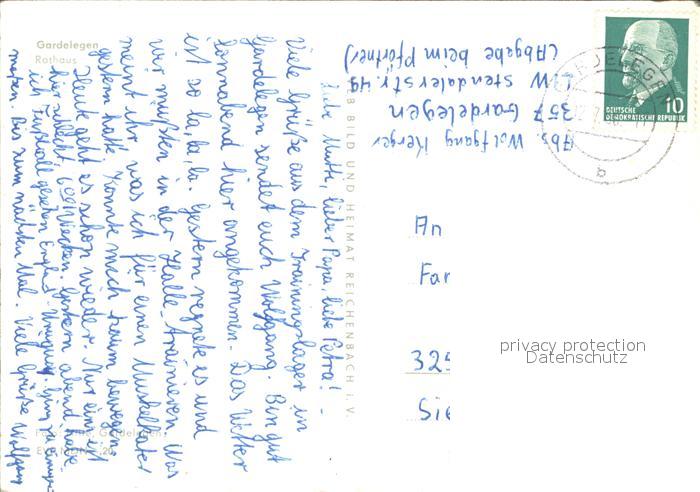 Gardelegen
Rathaus
Liebe Mutti, lieber Papa, liebe Petra! -
Viele Grüße aus dem Trainingslager in
Gardelegen sendet euch Wolfgang. Bin gut
Sonnabend hier angekommen. Das Wetter
ist so la, la, la. Gestern regnete es und
wir mußten in der Halle trainieren. Was
meint ihr, was ich für einen Muskelkater
gestern hatte. Konnte mich kaum bewegen.
Heute geht es schon wieder. Nur eins ist
hier schlecht, 6 00 Wecken. Gestern abend habe
ich Fußball gesehen England - Uruguay. Ging ja
maßen. Bis zum nächsten Mal. Viele Grüße Wolfgang
BILD UND HEIMAT REICHENBACH i. V.
Abs. Wolfgang Kerger
357 Gardelegen
Stendalerstr. 49
(Abgabe beim Pförtner)
DEUTSCHE
DEMOKRATISCHE REPUBLIK
10
b
An
Far
325
Sie
privacy protection
Datenschutz